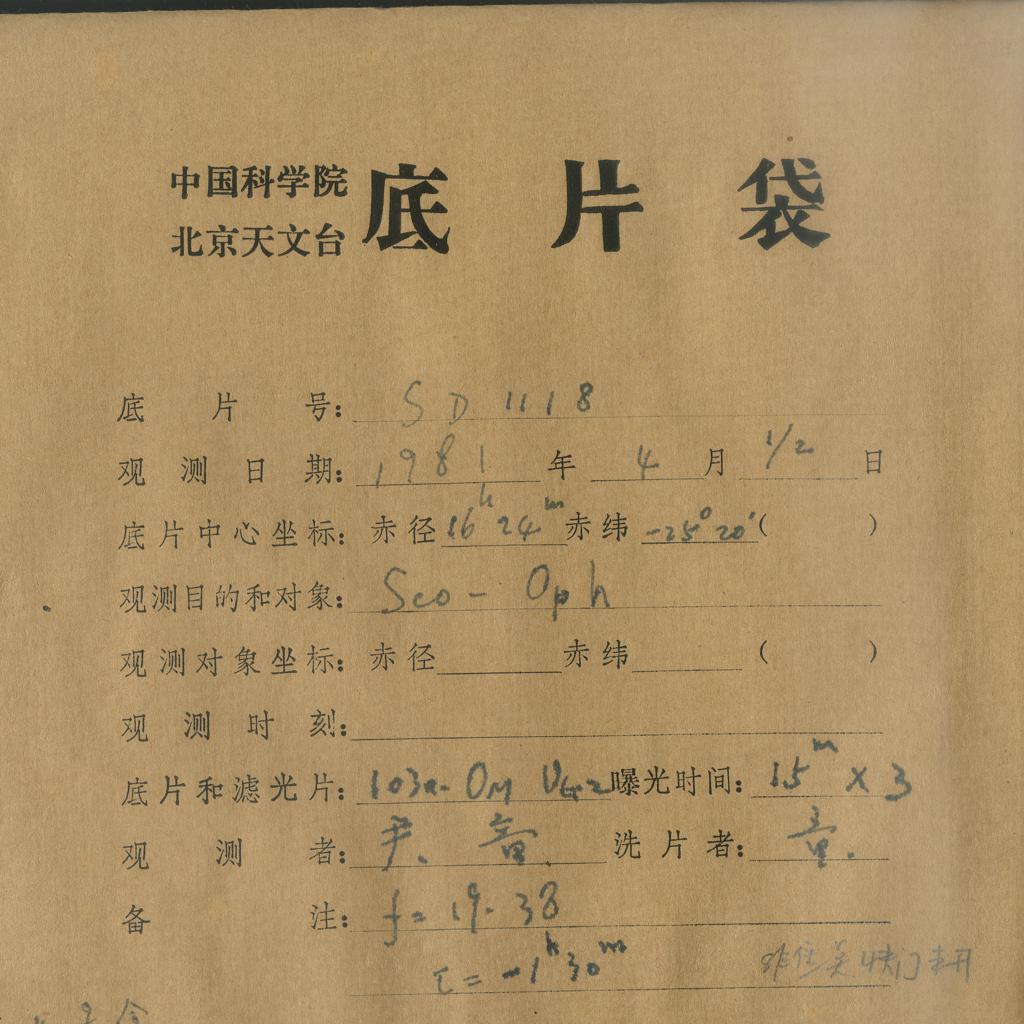 中国科学院
北京天文台
底片袋
底片号： SD 1118
观测日期： 1981 年 4 月 1/2 日
底片中心坐标：赤径 16h 24m 赤纬 -25° 20′ （ ）
观测目的和对象： Sco - Oph
观测对象坐标：赤径 赤纬 （ ）
观测时刻：
底片和滤光片： 103a-O 曝光时间： 15m × 3
观测者： 尹. 洗片者： 童.
备注： f = 19.38
τ = -1h 30m
快门未开